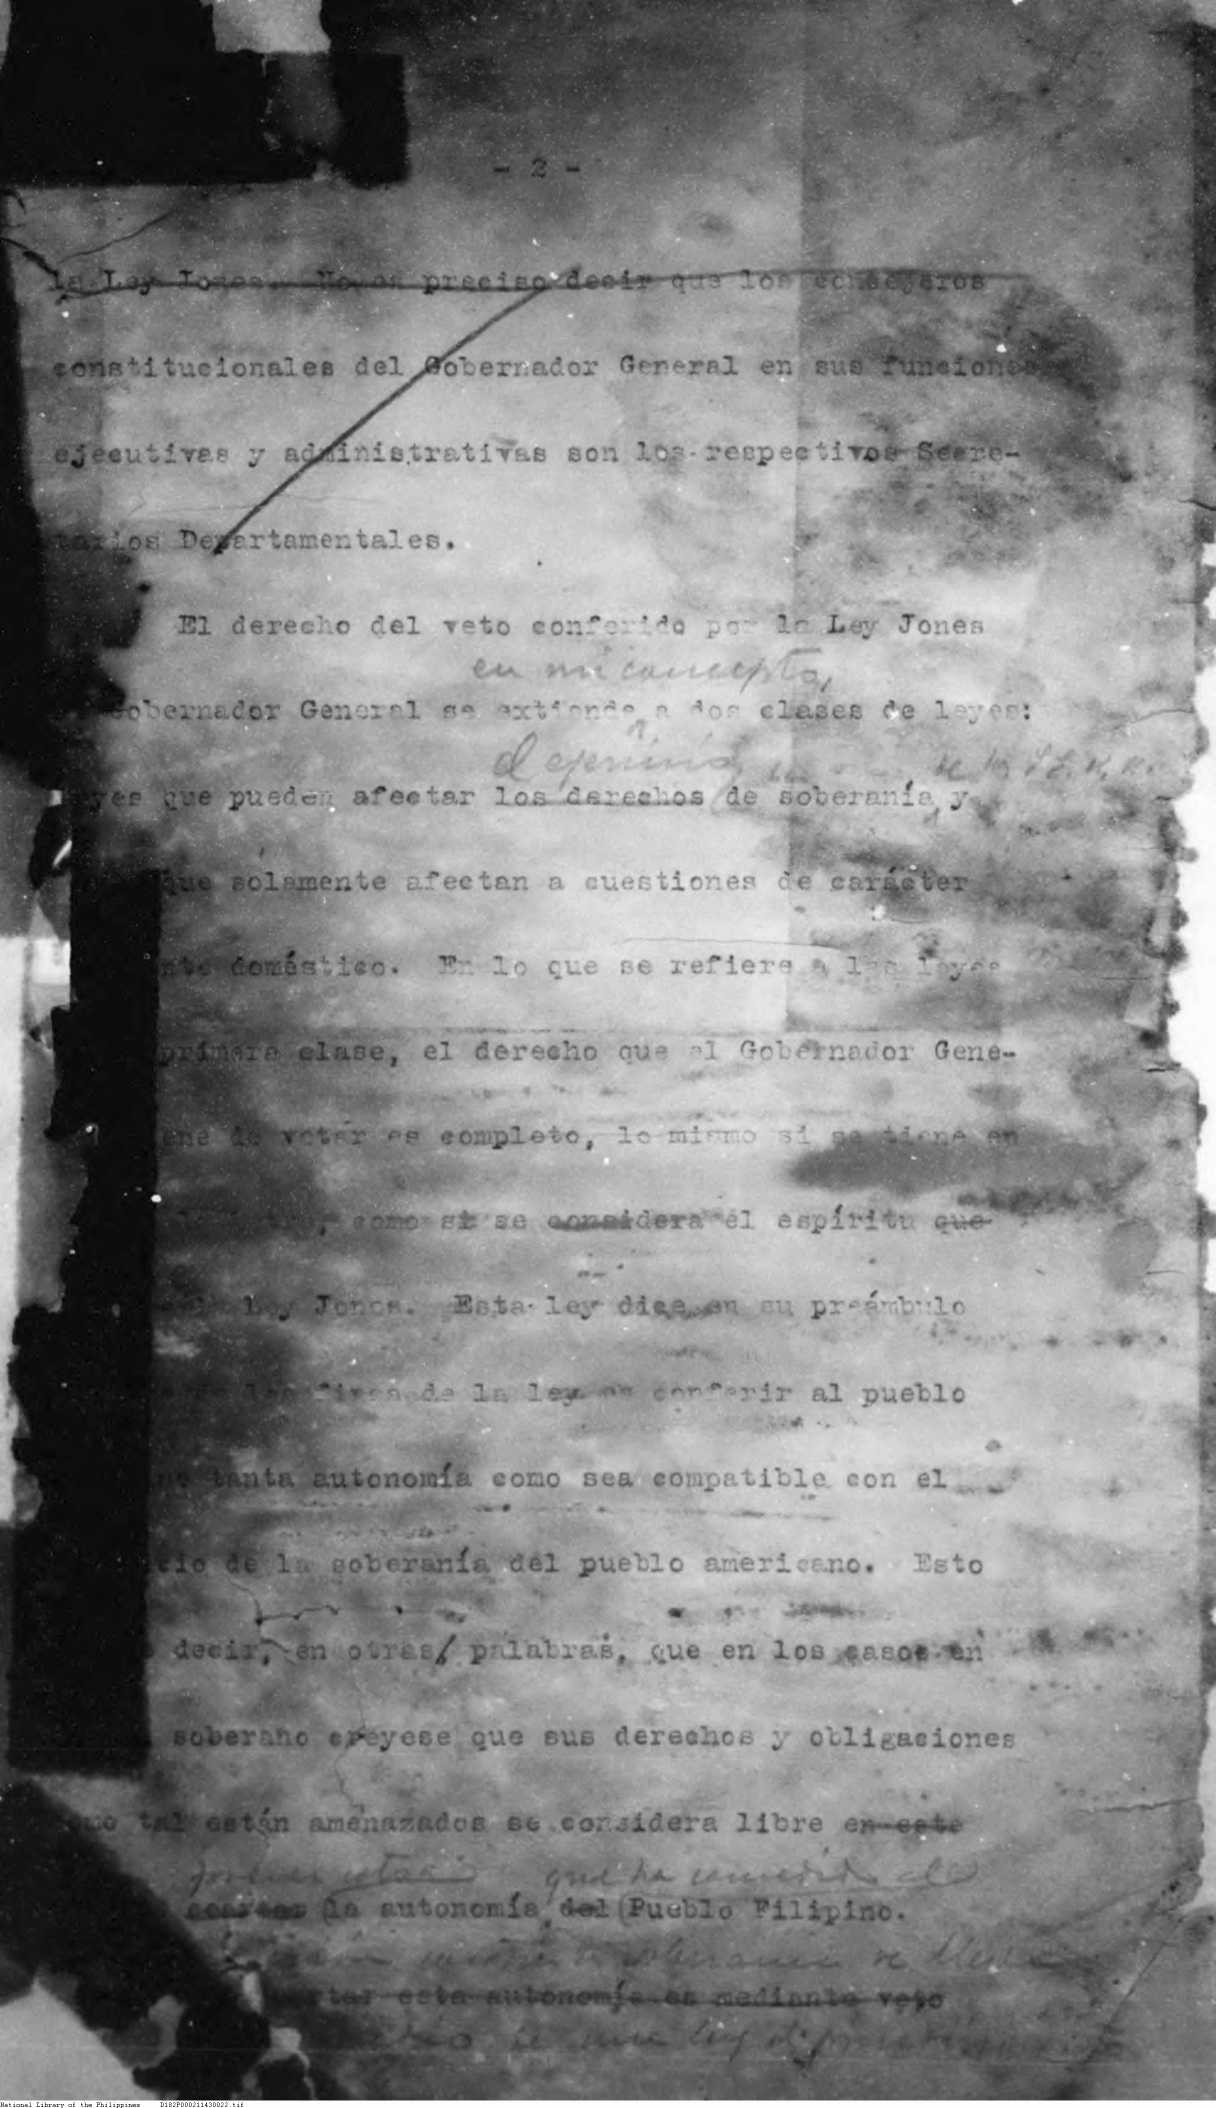 - 2 -
la Ley Jones. No es preciso decir que los consejeros
constitucionales del Gobernador General en sus funciones
ejecutivas y administrativas son los respectivos Secre-
tarios Departamentales.
El derecho del veto conferido por la Ley Jones
en mi concepto,
Gobernador General se extiende a dos clases de leyes:
de los
que pueden afectar los derechos de soberanía y
que solamente afectan a cuestiones de carácter
doméstico. En lo que se refiere a las leyes
primera clase, el derecho que el Gobernador Gene-
de vetar es completo, lo mismo si se tiene en
como si se considera el espíritu que
Ley Jones. Esta ley dice en su preámbulo
los fines de la ley es conferir al pueblo
tanta autonomía como sea compatible con el
de la soberanía del pueblo americano. Esto
decir, en otras palabras, que en los casos en
soberano creyese que sus derechos y obligaciones
tal están amenazados se considera libre en este
que ha concedido al
coartar la autonomía del Pueblo Filipino.
soberanía de
esta autonomía es mediante veto
de una ley
National Library of the Philippines D182P000211430022.tif